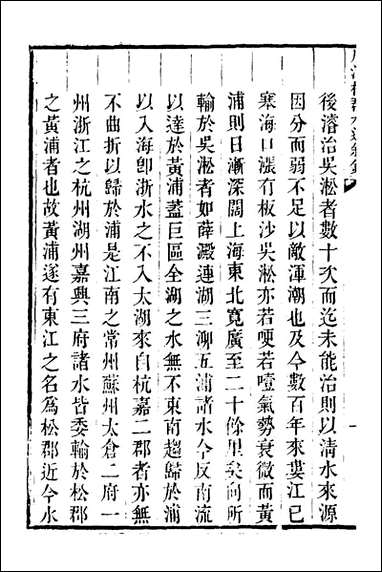 後濬治吳淞者數十次而迄未能治則以清水來源
因分而弱不足以敵渾潮也及今數百年來婁江已
塞海口漲有板沙吳淞亦若哽若噎氣勢衰微而黃
浦則日漸深闊上海東北寬廣至二十餘里矣向所
輸於吳淞者如薛澱連湖三泖五浦諸水今反南流
以達於黃浦蓋巨區全湖之水無不東南趨歸於浦
以入海卽浙水之不入太湖來自杭嘉二郡者亦無
不曲折以歸於浦是江南之常州蘇州太倉二府一
州浙江之杭州湖州嘉興三府諸水皆委輸於松郡
之黃浦者也故黃浦遂有東江之名爲松郡近今水